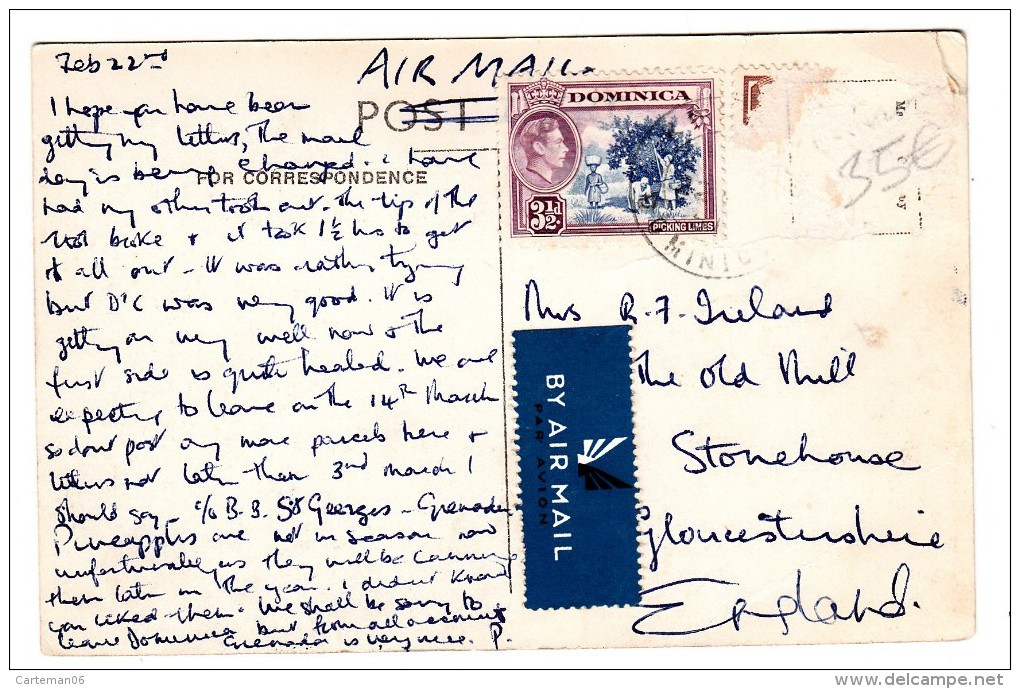 Feb 22nd
AIR MAIL
POST
FOR CORRESPONDENCE
I hope you have been
getting my letters, The mail
day is being changed. I have
had my other tooth out. The tip of the
root broke & it took 1½ hrs to get
it all out - It was rather trying
but D'C was very good. It is
getting on very well now & the
first side is quite healed. We are
expecting to leave on the 14th March
so dont post any more parcels here &
letters not later than 3rd March I
should say - c/o B.B. St Georges - Grenada
Pineapples are not in season now
unfortunately as they will be canning
them later in the year. I didn't know
you liked them. We shall be sorry to
leave Dominica but from all accounts
Grenada is very nice. P.
DOMINICA
3½d
PICKING LIMES
MINIC
35€
BY AIR MAIL
PAR AVION
Mrs R.F. Ireland
The Old Mill
Stonehouse
Gloucestershire
England.
Carteman06
delcampe.net